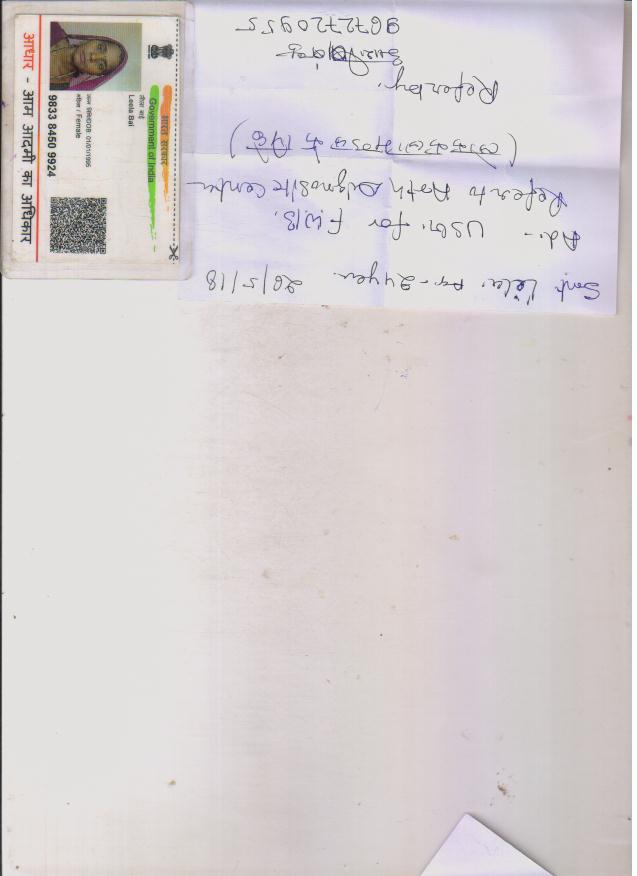 भारत सरकार
Government of India
लीला बाई
Leela Bai
जन्म तिथि/DOB: 01/01/1995
महिला / Female
9833 8450 9924
आधार - आम आदमी का अधिकार
Smt Leela. Ag - 24 year. 20/5/18
Ad. - USG. for F.W.B.
Refer to Diagnostic Centre
( के )
Refer by.
9672720955